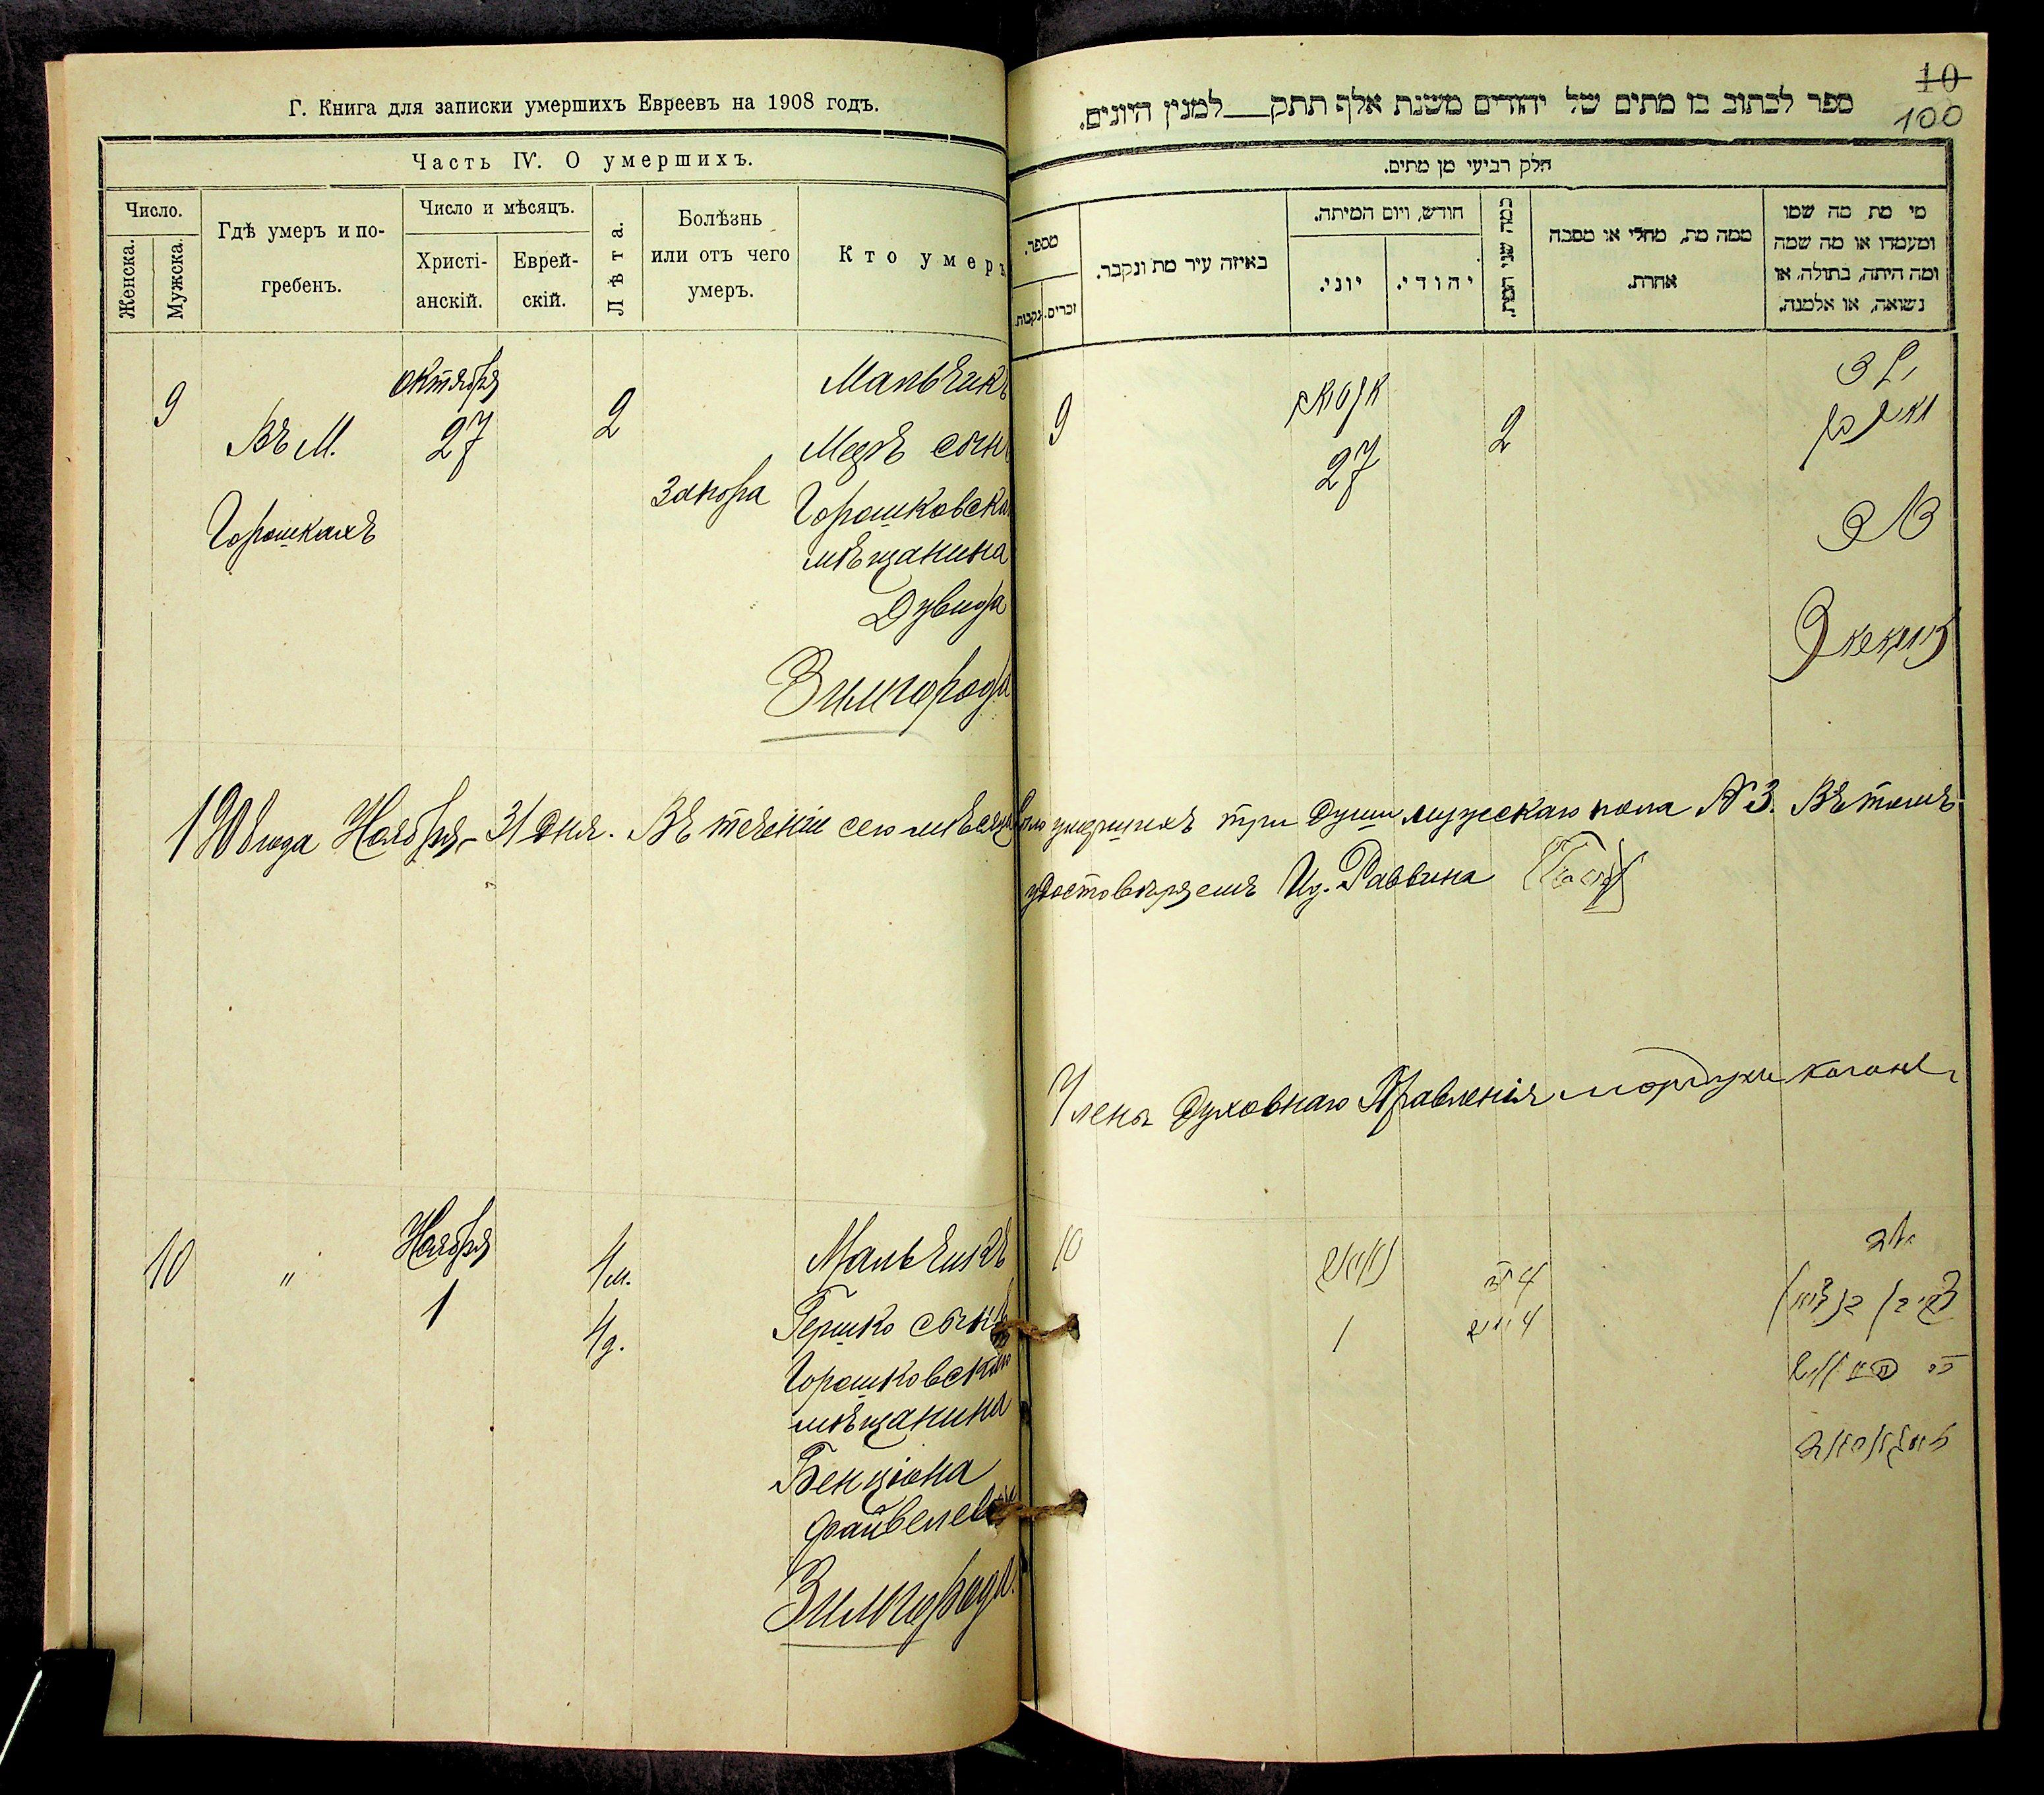 Г. Книга для записки умершихъ Евреевъ на 1908 годъ.
Часть IV. О умершихъ.
Число.
Женска.
Мужска.
Гдѣ умеръ и по-
гребенъ.
Число и мѣсяцъ.
Христі-
анскій.
Еврей-
скій.
Лѣта.
Болѣзнь
или отъ чего
умеръ.
Кто умеръ
9
Въ М.
Горошкахъ
Октября
27
2
Запора
Мальчикъ
сынъ
Горошковска
мѣщанина
Дувида
Зимгорода
10
"
Ноября
1
4 м.
4 д.
Мальчикъ
Гершко сынъ
Горошковскаго
мѣщанина
Бенціона
Файвелев
Зимгорода.
10
100
ספר לכתוב בו מתים של יהודים משנת אלף תתק למנין היונים.
חלק רביעי מן מתים.
מספר.
נקבות.
זכרים.
באיזה עיר מת ונקבר.
חודש, ויום המיתה.
יוני.
יהודי.
כמה שני המת.
ממה מת, מחלי או מסבה
אחרת.
מי מת מה שמו
ומעמדו או מה שמה
ומה היתה, בתולה, או
נשואה, או אלמנה.
9
27
2
1908 года Ноября 31 дня. Въ теченіи сего мѣсяца было умершихъ три души мужскаго пола № 3. Въ томъ
удостовѣряемъ И. Раввина
Члена Духовнаго Правленія мордухъ коганъ
10
1
4
4